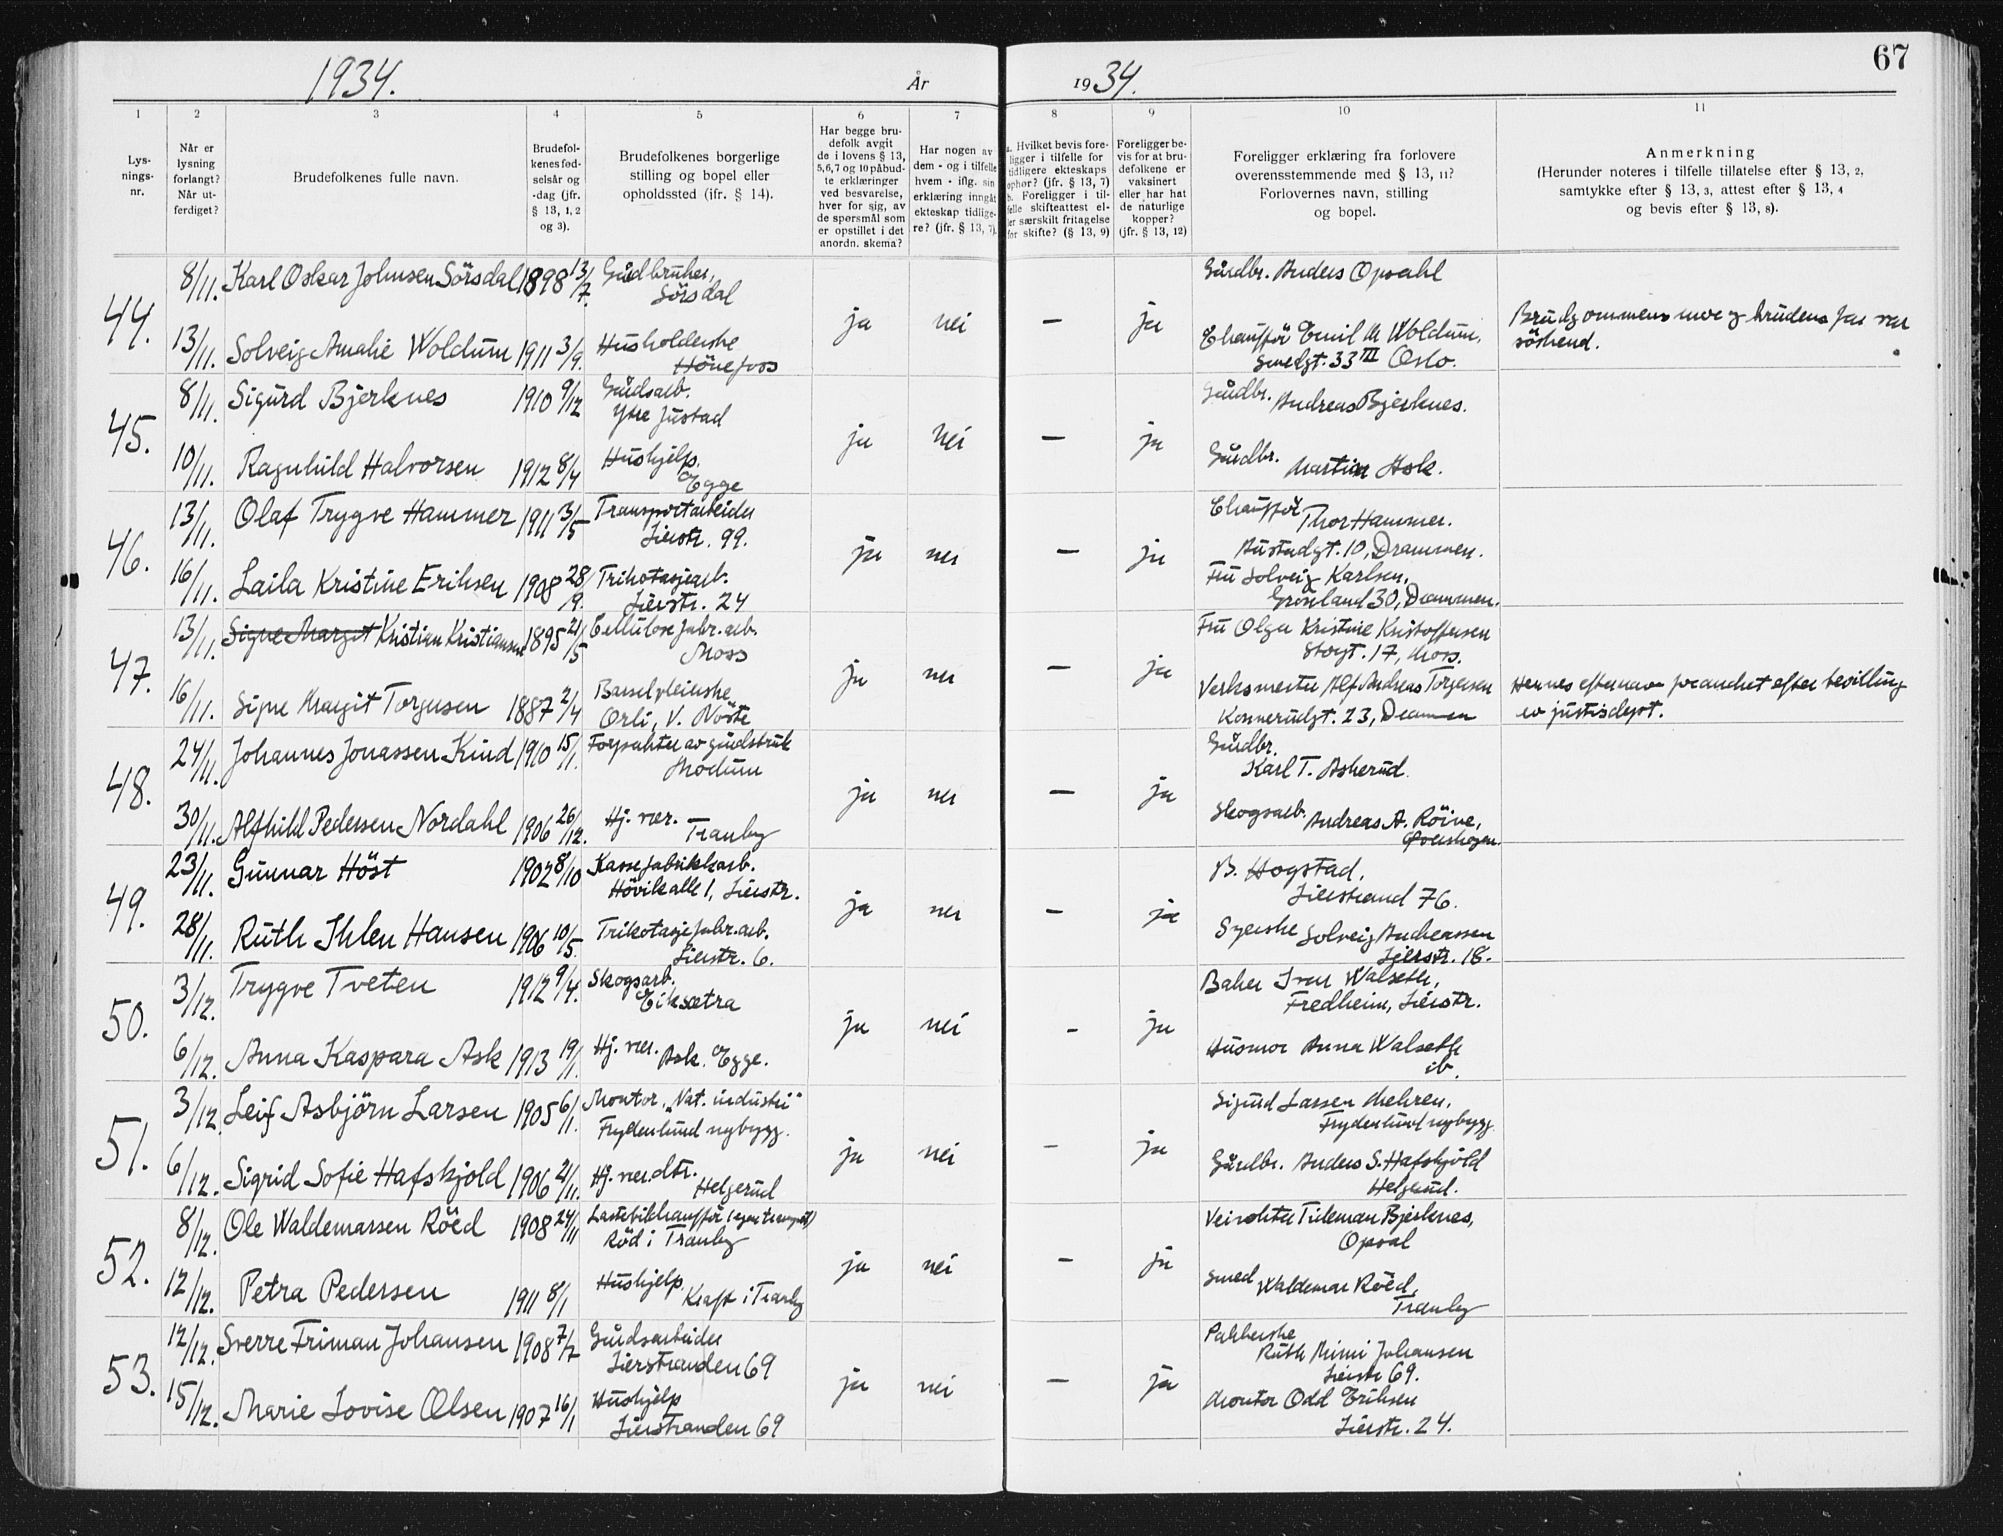 1934.
År
1934.
67
1
2
3
4
5
6
7
8
9
10
11
Lys-
nings-
nr.
Når er
lysning
forlangt?
Når ut-
ferdiget?
Brudefolkenes fulle navn.
Brudefol-
kenes fød-
selsår og
-dag (jfr.
§ 13, 1, 2
og 3).
Brudefolkenes borgerlige
stilling og bopel eller
opholdssted (ifr. § 14).
Har begge bru-
defolk avgit
de i lovens § 13,
5,6,7 og 10 påbud-
te erklæringer
ved besvarelse,
hver for sig, av
de spørsmål som
er opstillet i det
anordn. skema?
Har nogen av
dem - og i tilfelle
hvem - iflg. sin
erklæring inngåt
ekteskap tidlige-
re? (jfr. § 13, 7).
a. Hvilket bevis fore-
ligger i tilfelle for
tidligere ekteskaps
ophør? (jfr. § 13, 7)
b. Foreligger i til-
felle skifteattest el-
ler særskilt fritagelse
for skifte? (§ 13, 9)
Foreligger be-
vis for at bru-
defolkene er
vaksinert
eller har hat
de naturlige
kopper?
(jfr. § 13, 12)
Foreligger erklæring fra forlovere
overensstemmende med § 13, 11?
Forlovernes navn, stilling
og bopel.
Anmerkning
(Herunder noteres i tilfelle tillatelse efter § 13, 2,
samtykke efter § 13, 3, attest efter § 13, 4
og bevis efter § 13, 8).
44.
8/11. Karl Oskar Johnsen Sörsdal 1898 13/7. Gårdbruker,
Sörsdal
ja nei — ja
Gårdbr. Anders Opsahl
13/11. Solveig Amalie Woldum 1911 3/9. Husholderske
Hönefoss
Chaufför Emil M Woldum,
Smedgt. 33 III Oslo.
Brudgommens mor og brudens far var
söskend.
45.
8/11. Sigurd Bjerknes 1910 9/12 Gårdsarb.
Ytre Justad
ja nei — ja
Gårdbr. Andreas Bjerknes.
10/11. Ragnhild Halvorsen 1912 8/4 Hushjelp.
Egge
Gårdbr. Martin Ask.
46.
13/11. Olaf Trygve Hammer 1911 3/5 Transportarbeider
Lierstr. 99.
ja nei — ja
Chaufför Thor Hammer.
Austadgt. 10, Drammen.
16/11. Laila Kristine Eriksen 1908 28/9. Trikotasjearb.
Lierstr. 24
Fru Solveig Karlsen,
Grönland 30, Drammen.
47.
13/11. Signe Margit Kristian Kristiansen 1895 21/5 Cellulose fabr. arb.
Moss
ja nei — ja
Fru Olga Kristine Kristoffersen
Storgt. 17, Moss.
16/11. Signe Margit Torgersen 1887 2/4 Barselpleierske
Orli, V. Nöste
Verksmester Alf Andreas Torgersen
Konnerudgt. 23, Drammen
Hennes efternavn forandret efter bevilling
av justisdept.
48.
24/11. Johannes Jonassen Kind 1910 15/1. Forpakter av gårdsbruk
Modum
ja nei — ja
Gårdbr.
Karl T. Askerud.
30/11. Alfhild Pedersen Nordahl 1906 26/12. Hj. vær.
Tranby
Skogsarb. Andreas A. Röine,
49.
23/11. Gunnar Höst 1902 8/10 Kassefabrikkarb.
Hövikalle 1, Lierstr.
ja nei — ja
B. Hogstad,
Lierstrand 76.
28/11. Ruth Ihlen Hansen 1906 10/5. Trikotasjefabr. arb.
Lierstr. 6.
Syerske Solveig Anderssen
Lierstr. 18.
50.
3/12. Trygve Tveten 1912 9/4. Skogsarb.
Eiksætra
ja nei - ja
Baker Ivar Walseth,
Fredheim, Lierstr.
6/12. Anna Kaspara Ask 1913 19/1. Hj. vær. Ask. Egge.
Husmor Anna Walseth
ib.
51.
3/12. Leif Asbjörn Larsen 1905 6/1. Montør. „Nat. industri"
Frydenlund nybygg.
ja nei — ja
Sigurd Larsen Mehren,
Frydenlund nybygg.
6/12. Sigrid Sofie Hafskjold 1906 2/11. Hj. vær. dtr.
Helgerud
Gårdbr. Anders S. Hafskjold
Helgerud.
52.
8/12. Ole Waldemarssen Röed 1908 24/11 Lastebilchaufför (egen transport)
Röd i Tranby
ja nei — ja
Veivokter Tideman Bjerknes,
Opsal
12/12. Petra Pedersen 1911 8/1 Hushjelp
Kraft i Tranby
Smed Waldemar Röed,
Tranby
53.
12/12. Sverre Friman Johansen 1908 7/7 Gårdsarbeider
Lierstranden 69
ja nei — ja
Pakkerske
Ruth Mimi Johansen
Lierstr 69.
15/12. Marie Lovise Olsen 1907 16/1 Hushjelp
Lierstranden 69
Montør Odd Eriksen
Lierstr. 24.